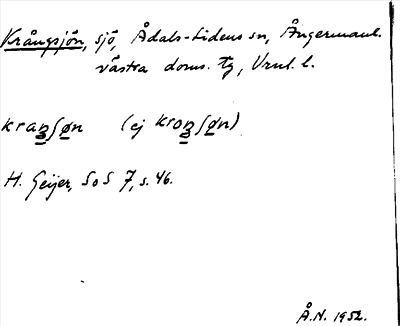 Krångsjön, sjö, Ådals-Lidens sn, Ångermanl.
västra doms. tg, Vrnl. l.
kraŋʃøn (ej kroŋʃøn)
H. Geijer, SoS 7, s. 46.
Å.N. 1952.